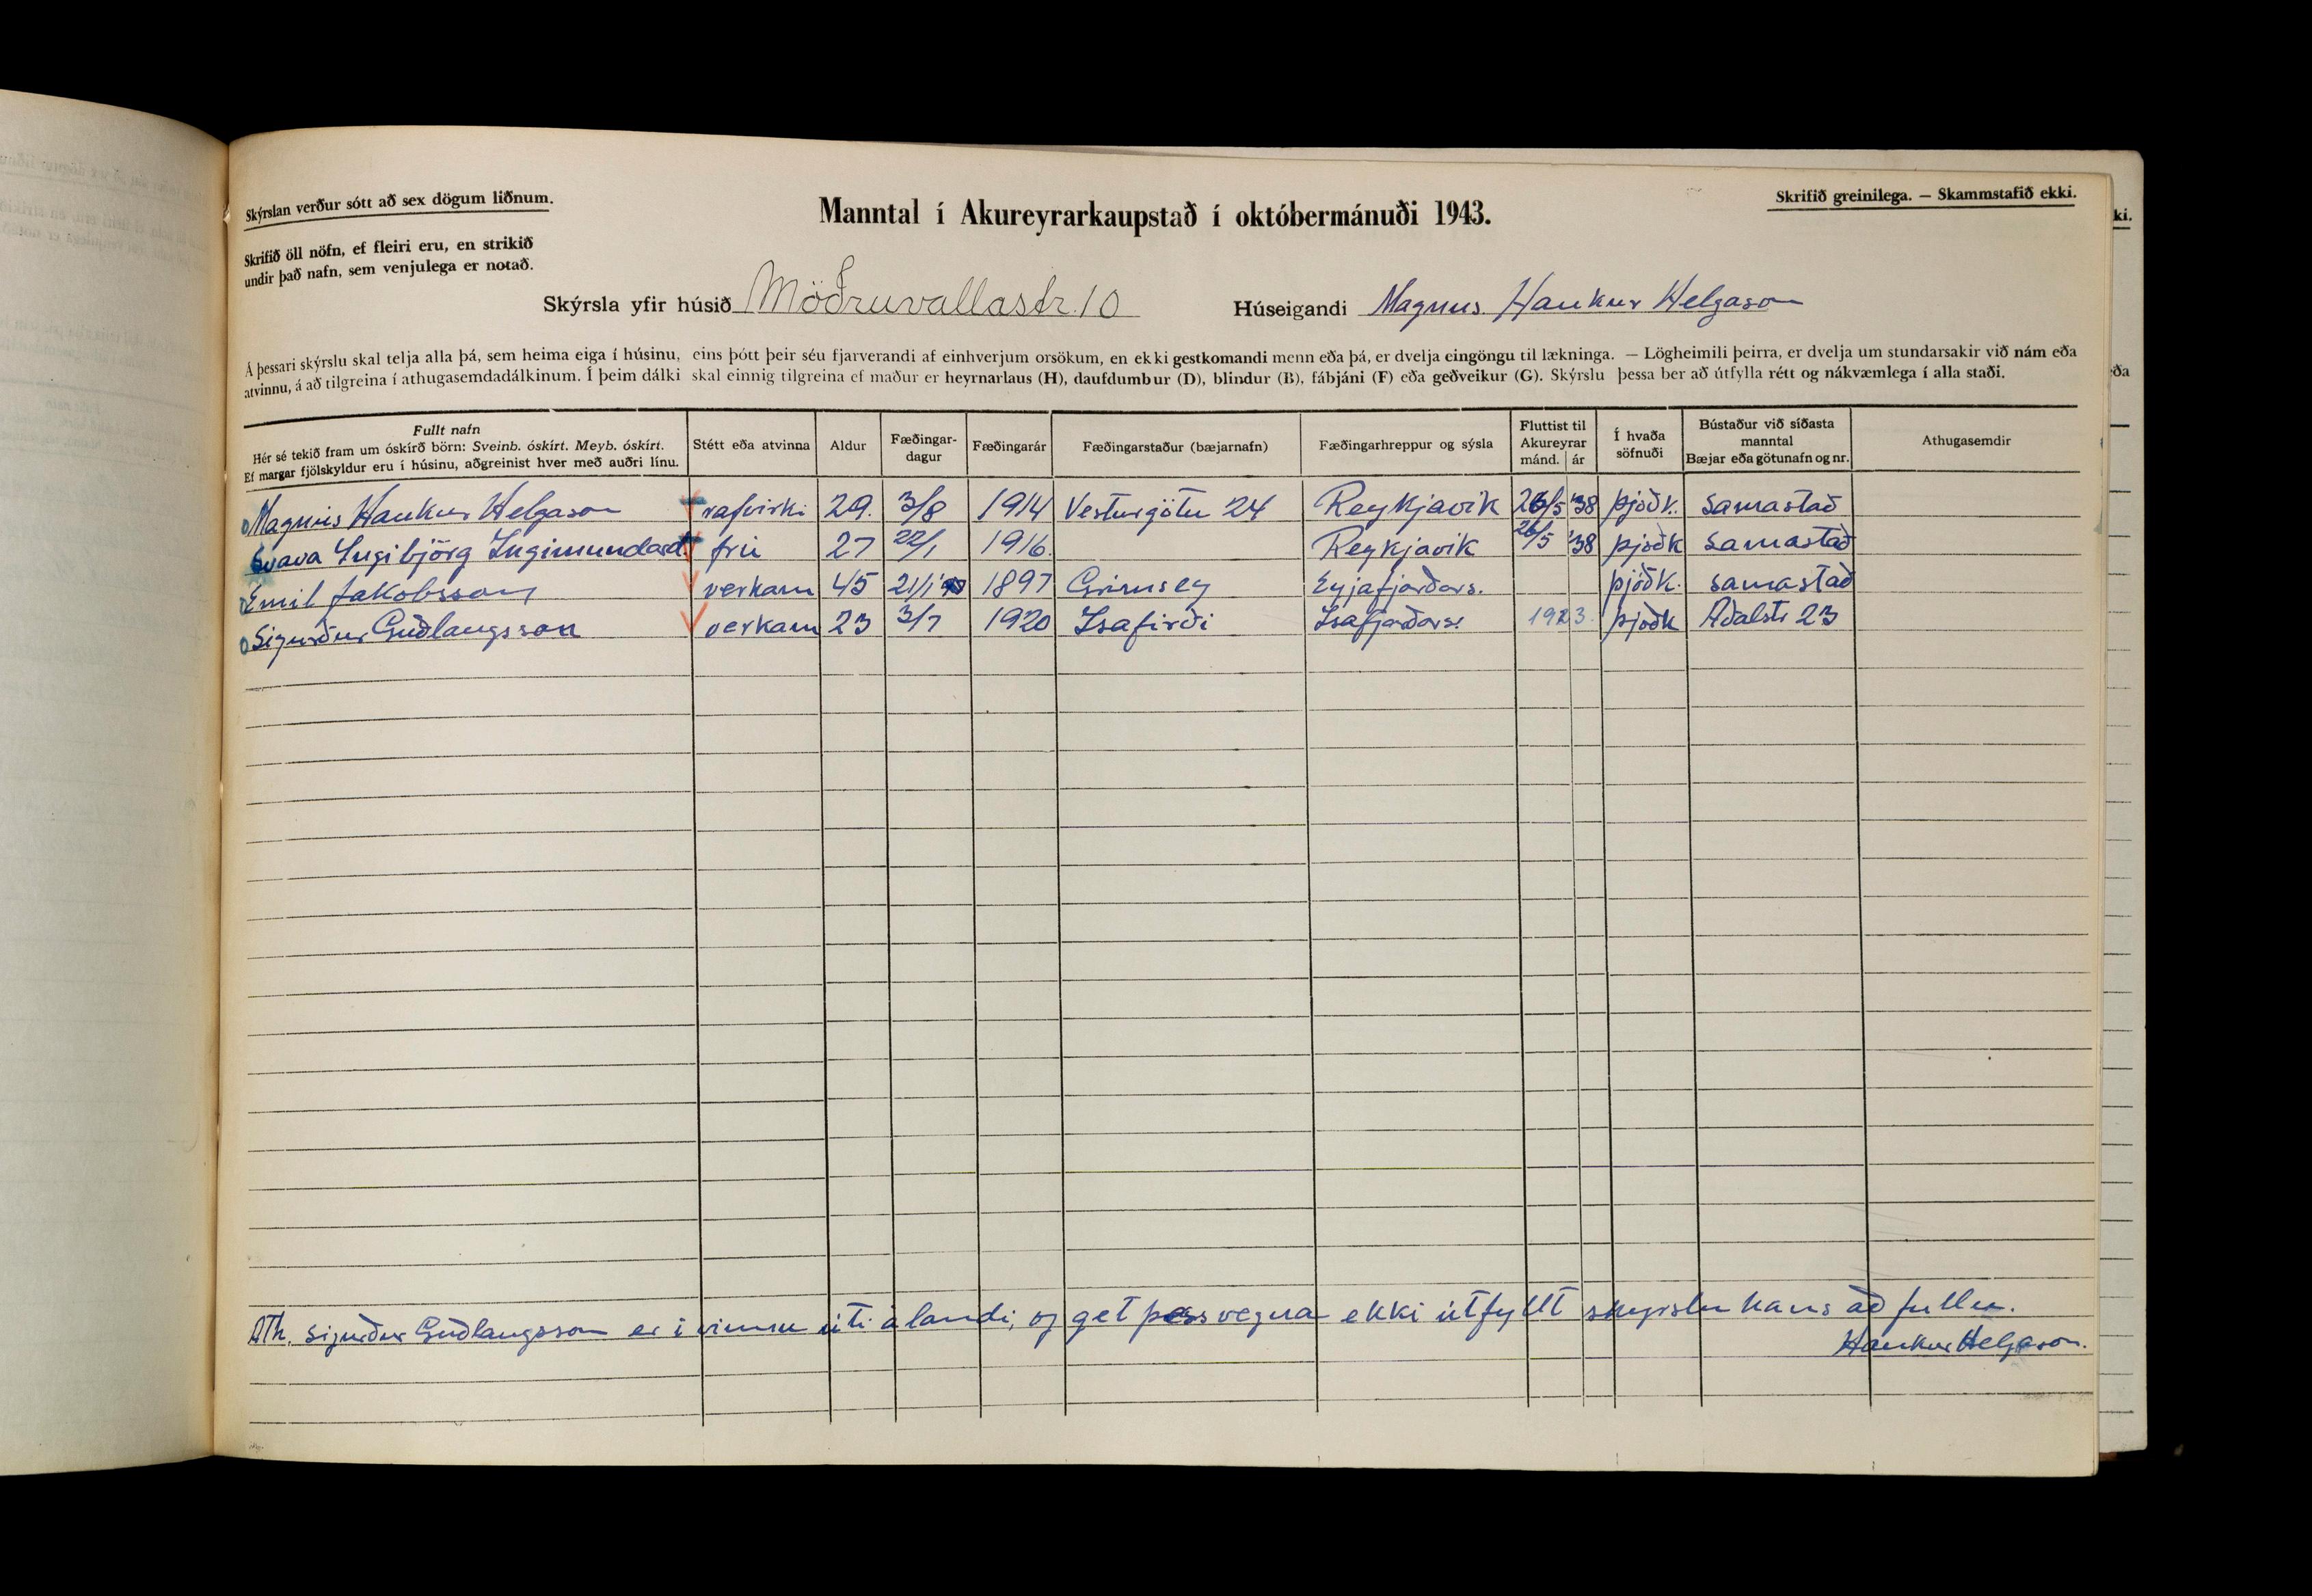 Skýrslan verður sótt að sex dögum liðnum.
Manntal í Akureyrarkaupstað í októbermánuði 1943.
Skrifið greinilega. — Skammstafið ekki.
Skrifið öll nöfn, ef fleiri eru, en strikið
undir það nafn, sem venjulega er notað.
Skýrsla yfir húsið Möðruvallastr. 10 Húseigandi Magnus Haukur Helgason
Á þessari skýrslu skal telja alla þá, sem heima eiga í húsinu, eins þótt þeir séu fjarverandi af einhverjum orsökum, en ekki gestkomandi menn eða þá, er dvelja eingöngu til lækninga. — Lögheimili þeirra, er dvelja um stundarsakir við nám eða
atvinnu, á að tilgreina í athugasemdadálkinum. Í þeim dálki skal einnig tilgreina ef maður er heyrnarlaus (H), daufdumbur (D), blindur (B), fábjáni (F) eða geðveikur (G). Skýrslu þessa ber að útfylla rétt og nákvæmlega í alla staði.
Fullt nafn
Hér sé tekið fram um óskírð börn: Sveinb. óskírt. Meyb. óskírt.
Ef margar fjölskyldur eru í húsinu, aðgreinist hver með auðri línu.
Stétt eða atvinna
Aldur
Fæðingar-
dagur
Fæðingarár
Fæðingarstaður (bæjarnafn)
Fæðingarhreppur og sýsla
Fluttist til
Akureyrar
mánd. | ár
Í hvaða
söfnuði
Bústaður við síðasta
manntal
Bæjar eða götunafn og nr.
Athugasemdir
Magnús Haukur Helgason rafvirki 29. 3/8 1914 Vesturgötu 24 Reykjavik 26/5 '38 þjóðk. samastað
Svava Ingibjörg Ingimundard. frú 27 22/1 1916. Reykjavik 26/5 '38 þjoðk samastað
Emil Jakobsson verkam 45 21/1 1897 Grimsey Eyjafjarðars. þjóðk. samastað
Sigurður Guðlaugsson verkam 23 3/7 1920 Isafirði Isafjarðars. 1923. þjoðk Aðalstr 23
Ath. Sigurður Guðlaugsson er i vinnu úti á landi, og get þess vegna ekki útfyllt skyrslu hans að fullu.
Haukur Helgason.
ki.
eða